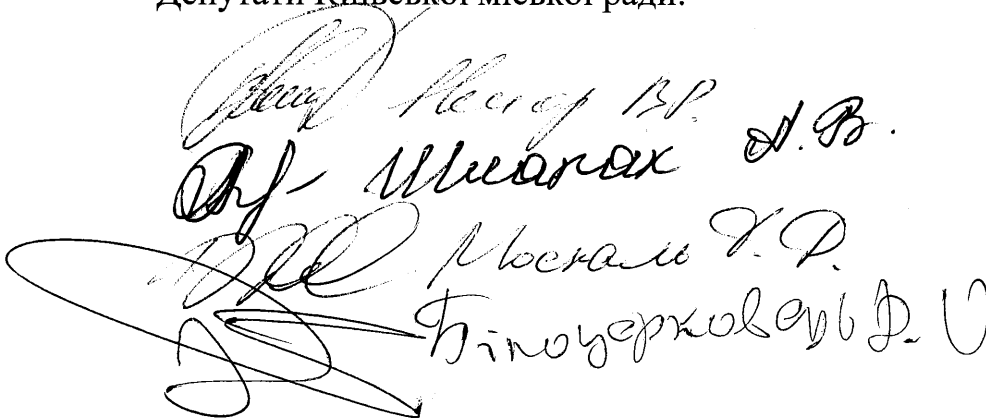 Депутати Київської міської ради:
Нестор В.Р.
Шмарак А.В.
Москаль Х.Р.
Білоцерковець Д.О